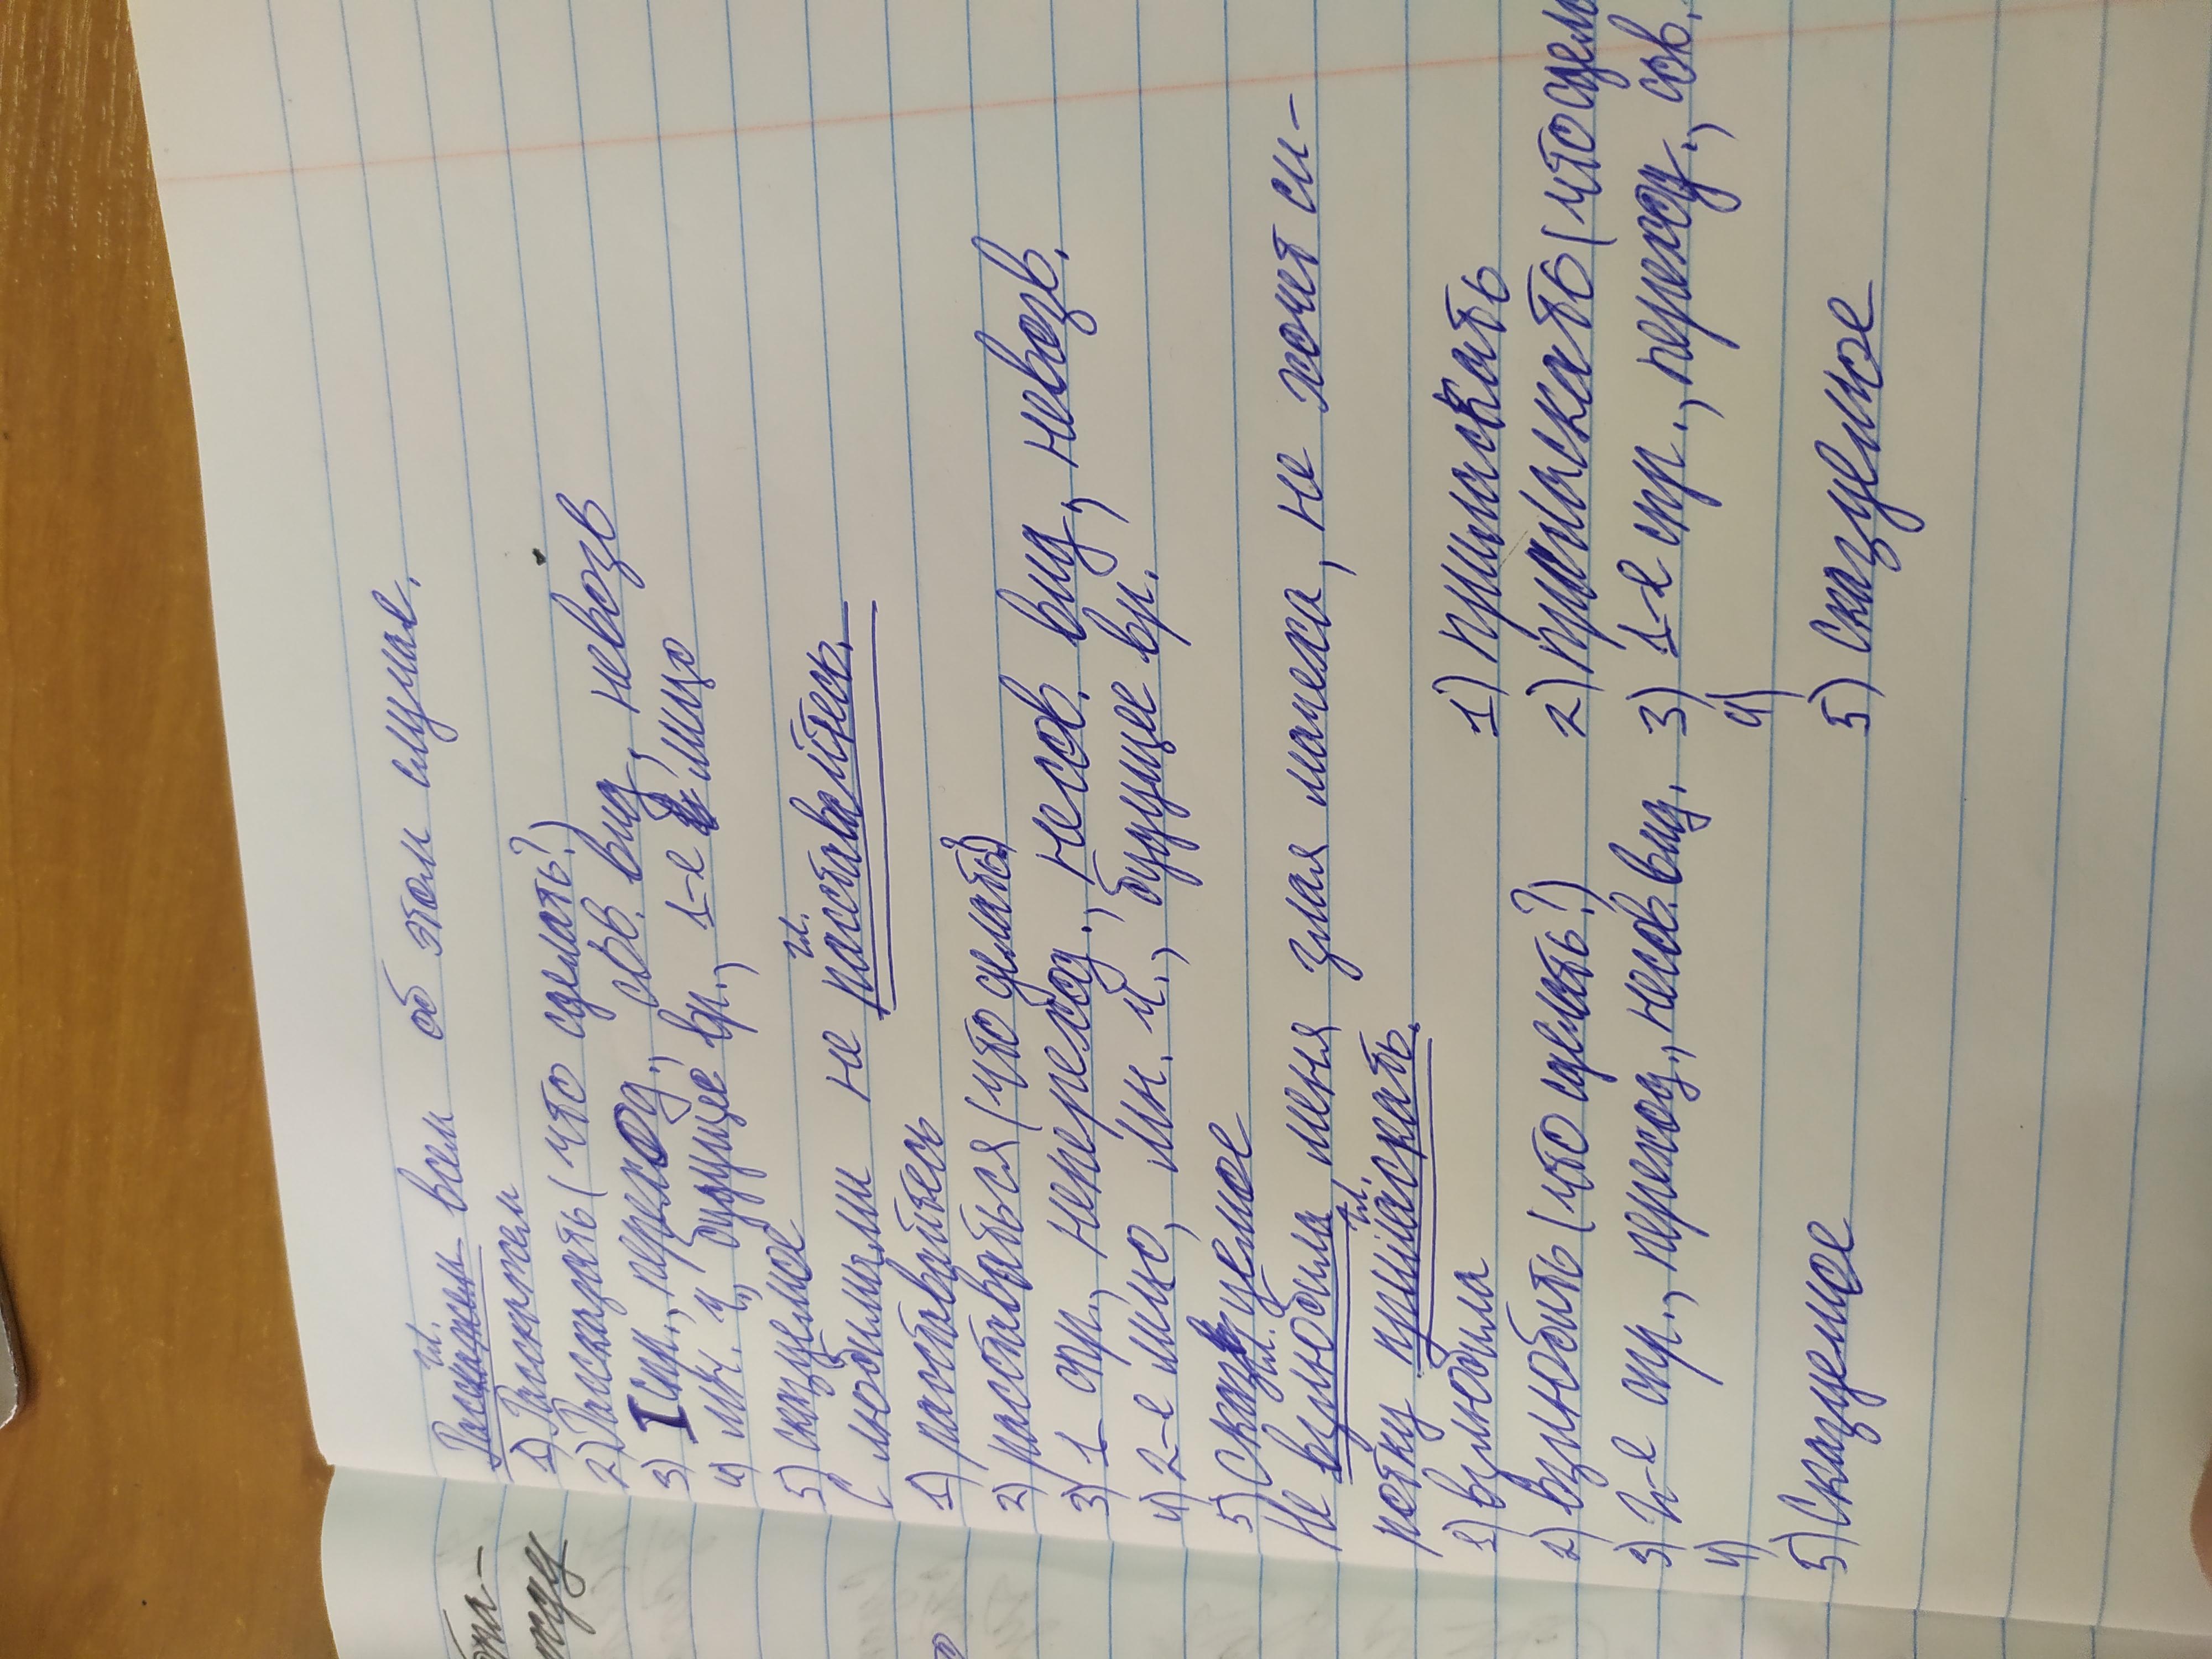 гл.
Расскажем всем об этом случае.
1) Расскажем
2) Рассказать (что сделать?)
3) I спр., переход., сов. вид, невозв
4) мн. ч, будущее вр., 1-е лицо
5) сказуемое
гл.
С любимыми не расставайтесь.
1) расставайтесь
2) расставаться (что делать?)
3) 1 спр., неперехođ., несов. вид, невозв.
4) 2-е лицо, мн. ч., будущее вр.
5) Сказуемое
гл.
Не взлюбила меня злая мачеха, не хочет си-
гл.
ротку приласкать.
1) взлюбила 1) приласкать
2) взлюбить (что сделать?) 2) приласкать (что сдел
3) 2-е спр., переход., несов. вид. 3) 1-е спр., переход., сов.
4) 4)
5) Сказуемое 5) Сказуемое